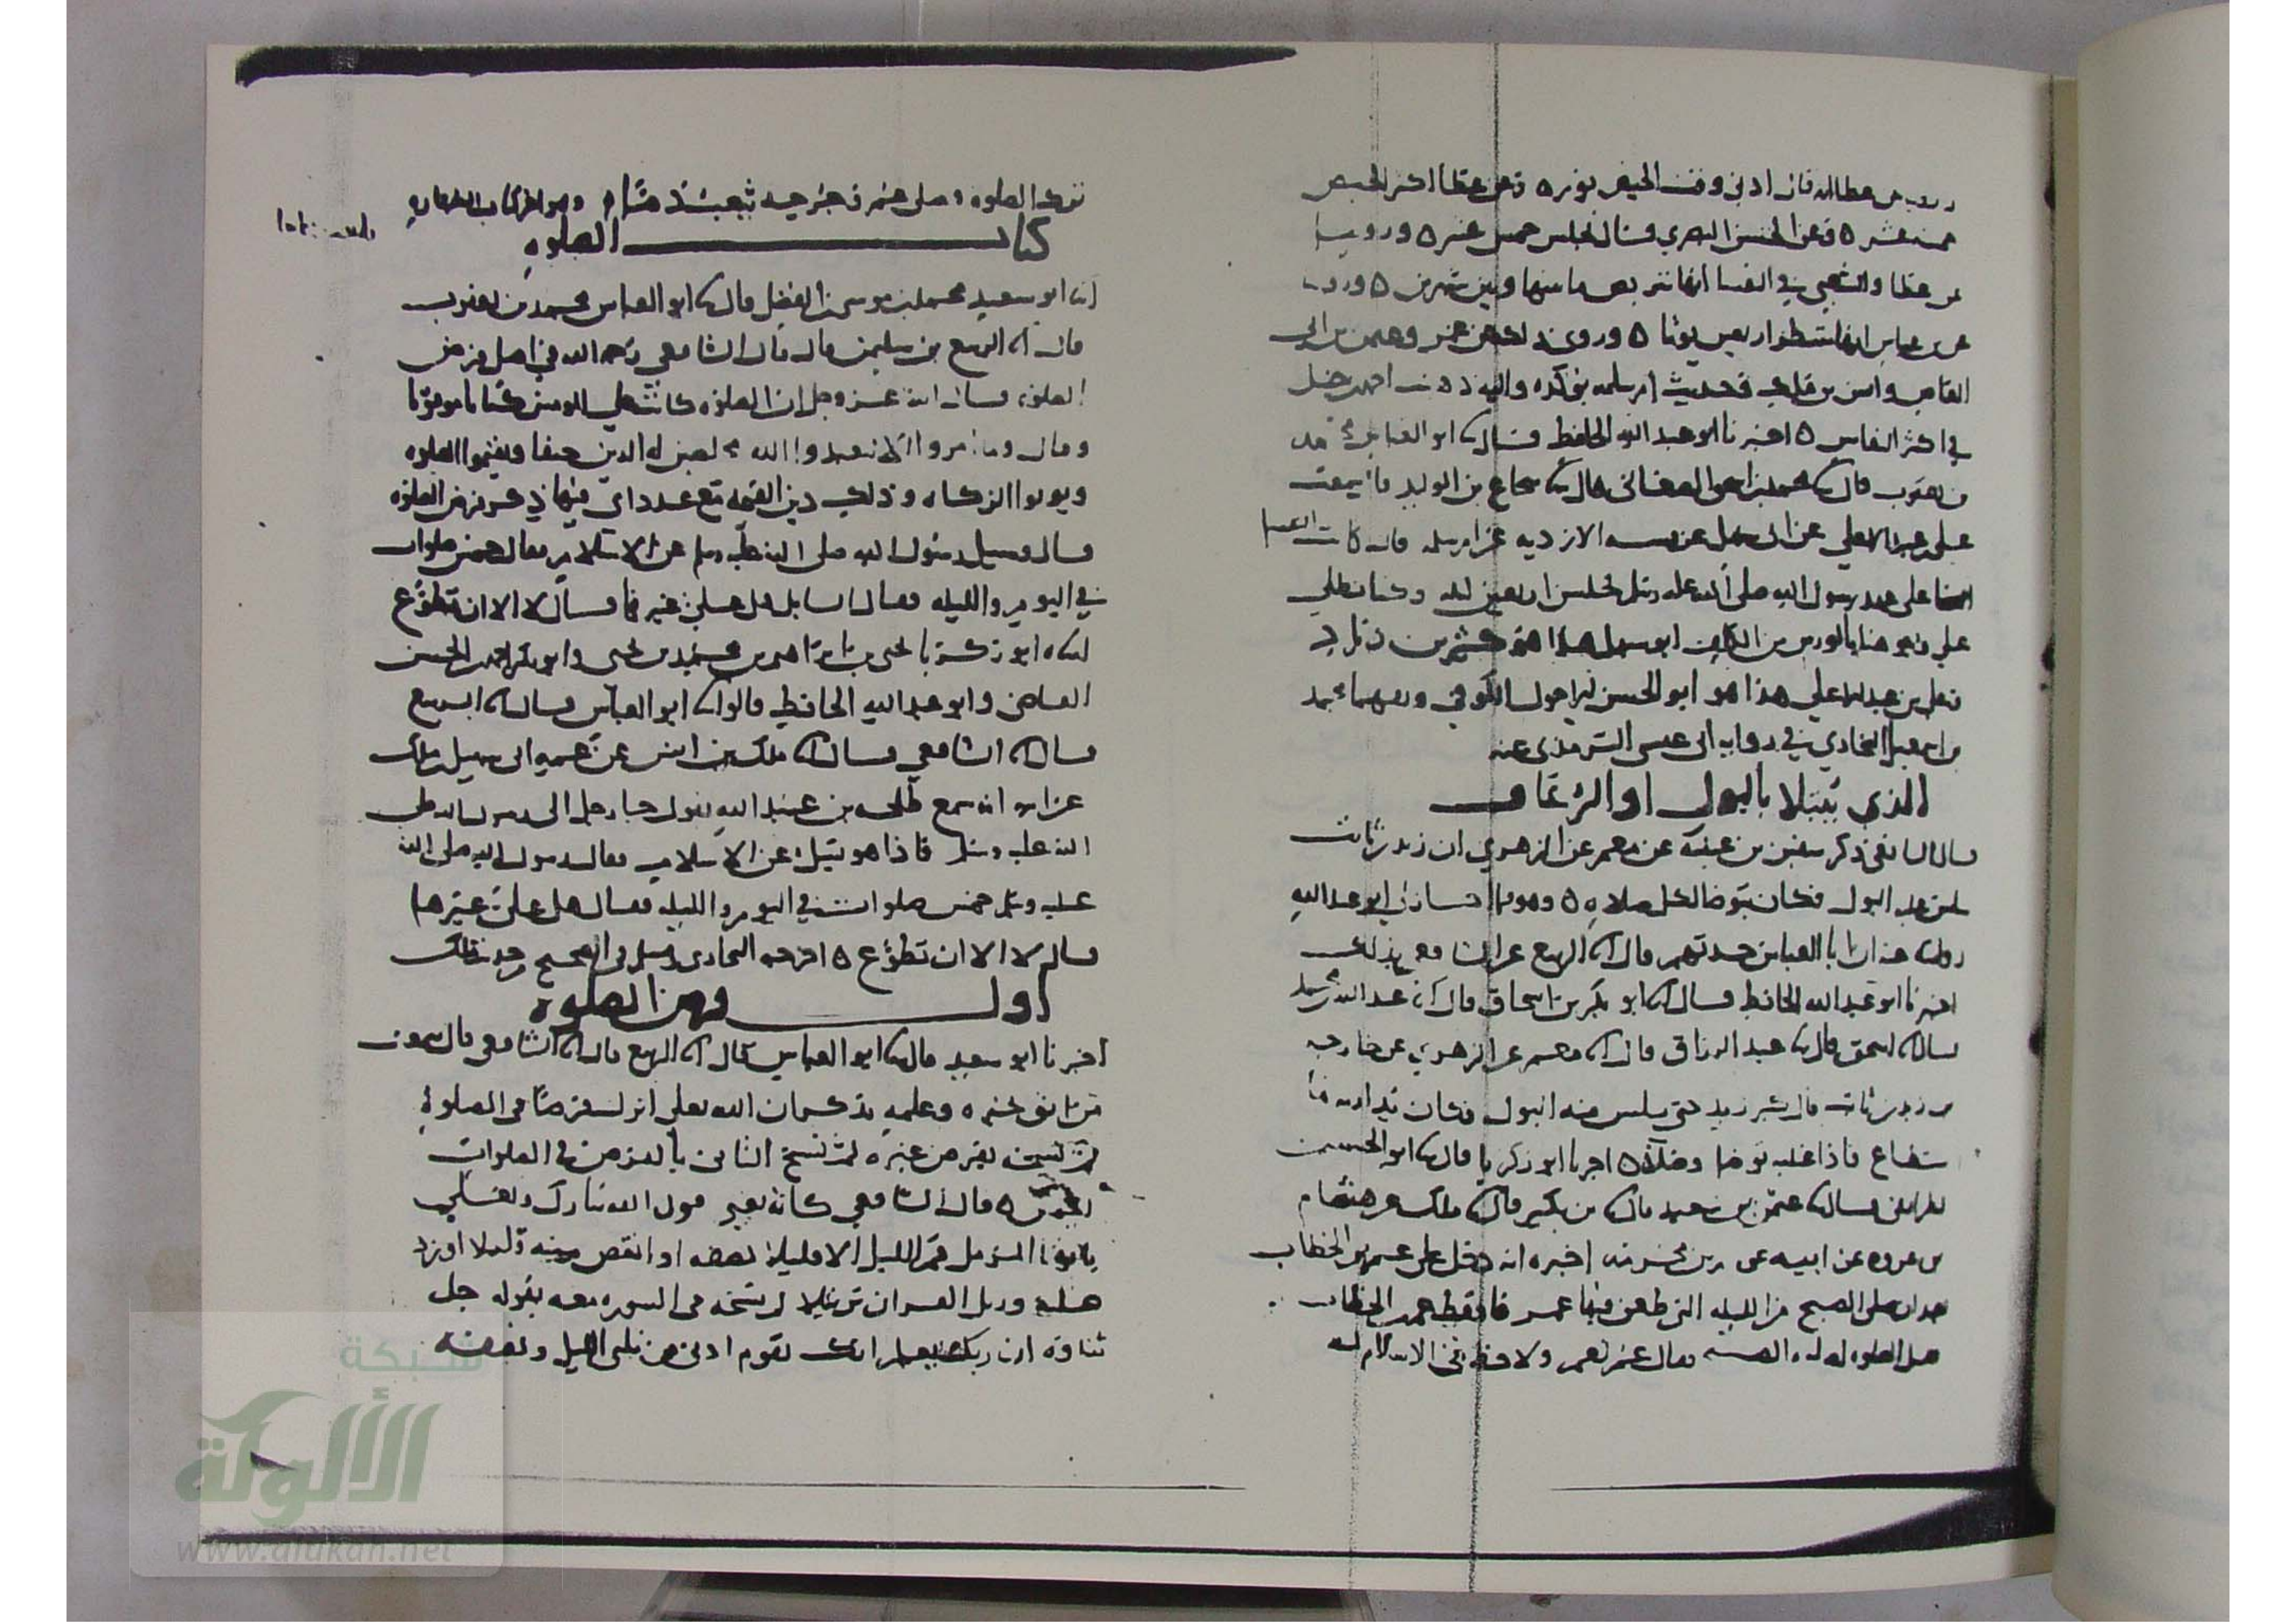 عن عطا انه قال ادنى وقت الحيض يوم ٥ وعن عطا اكثر الحيض
خمسة عشر ٥ وعن الحسن البصري قال تجلس خمس عشر ٥ وروينا
عن عطا والشعبي في النفسا انها تتربص ما بينها وبين شهرين ٥ وروينا
عن بن عباس انها تنتظر اربعين يوما ٥ وروي ذلك عن عمر وعثمن بن ابي
العاص وانس بن ملك وحديث ام سلمه يؤكده واليه ذهب احمد بن حنبل
في اكثر النفاس ٥ اخبرنا ابو عبد الله الحافظ قال ابو العباس محمد
بن يعقوب قال محمد بن اسحق الصغاني قال شجاع بن الوليد قال سمعت
علي بن عبد الاعلى عن ابي سهل عن مسه الازديه عن ام سلمه قالت كانت النفسا
على عهد رسول الله صلى الله عليه وسلم تجلس اربعين ليله وكنا نطلي
على وجوهنا بالورس من الكلف ابو سهل هذا هو كثير بن زياد
وعلي بن عبد الاعلى هذا هو ابو الحسن الاحول الكوفي وثقهما محمد
بن اسمعيل البخاري في روايه ابي عيسى الترمذي عنه
الذي يبتلا بالبول او الرعاف
قال الشافعي ذكر سفين بن عيينه عن معمر عن الزهري ان زيد بن ثابت
سلس عليه البول فكان يتوضا لكل صلاه ٥ وهو فيما اجاز لي ابو عبد الله
روايته عنه ان ابا العباس حدثهم قال الربيع عن الشافعي بذلك
اخبرنا ابو عبد الله الحافظ قال ابو بكر بن اسحاق قال عبد الله بن محمد
قال اسحق قال عبد الرزاق قال معمر عن الزهري عن خارجه
بن زيد بن ثابت قال كبر زيد حتى سلس منه البول فكان يداويه ما
استطاع فاذا غلبه توضا وصلى ٥ اخبرنا ابو زكريا قال ابو الحسن
الطرائفي قال عثمن بن سعيد قال بن بكير قال ملك عن هشام
بن عروه عن ابيه عن بن مخرمه اخبره انه دخل على عمر بن الخطاب
بعد ان صلى الصبح من الليله التي طعن فيها عمر فاوقظ عمر بن الخطاب
فقال عمر نعم ولا حظ في الاسلام لمن
ترك الصلوه وصلى عمر وجرحه يثعب دما وهو اخر كتاب الطهاره
كتاب الصلوه
ابو سعيد محمد بن موسى بن الفضل قال ابو العباس محمد بن يعقوب
قال الربيع بن سليمن قال قال الشافعي رحمه الله في اصل فرض
الصلوه قال الله عز وجل ان الصلوه كانت على المومنين كتابا موقوتا
وقال وما امروا الا ليعبدوا الله مخلصين له الدين حنفا ويقيموا الصلوه
ويوتوا الزكاه وذلك دين القيمه مع عدد اي فيها ذكر فرض الصلوه
قال وسيل رسول الله صلى الله عليه وسلم عن الاسلام فقال خمس صلوات
في اليوم والليله فقال السايل هل علي غيرها قال لا الا ان تطوع
ابو زكريا يحيى بن ابراهيم بن محمد بن يحيى وابو بكر احمد بن الحسن
القاضي وابو عبد الله الحافظ قالوا ابو العباس قال الربيع
قال الشافعي قال ملك بن انس عن عمه ابي سهيل بن ملك
عن ابيه انه سمع طلحه بن عبيد الله يقول جا رجل الى رسول الله صلى
الله عليه وسلم فاذا هو يسل عن الاسلام فقال رسول الله صلى الله
عليه وسلم خمس صلوات في اليوم والليله فقال هل علي غيرها
قال لا الا ان تطوع ٥ اخرجه البخاري ومسلم في الصحيح من حديث ملك
اول فرض الصلوه
اخبرنا ابو سعيد قال ابو العباس قال الربيع قال الشافعي قال سمعت
من اثق بخبره وعلمه يذكر ان الله تعلى انزل فرضا في الصلوه
ثم نسخه بفرض غيره ثم نسخ الثاني بالفرض في الصلوات
الخمس ٥ قال الشافعي كانه يعني قول الله تبارك وتعلى
يا ايها المزمل قم الليل الا قليلا نصفه او انقص منه قليلا او زد
عليه ورتل القران ترتيلا ثم نسخه في السوره معه بقوله جل
ثناوه ان ربك يعلم انك تقوم ادنى من ثلثي الليل ونصفه
شبكة
الألوكة
www.alukah.net